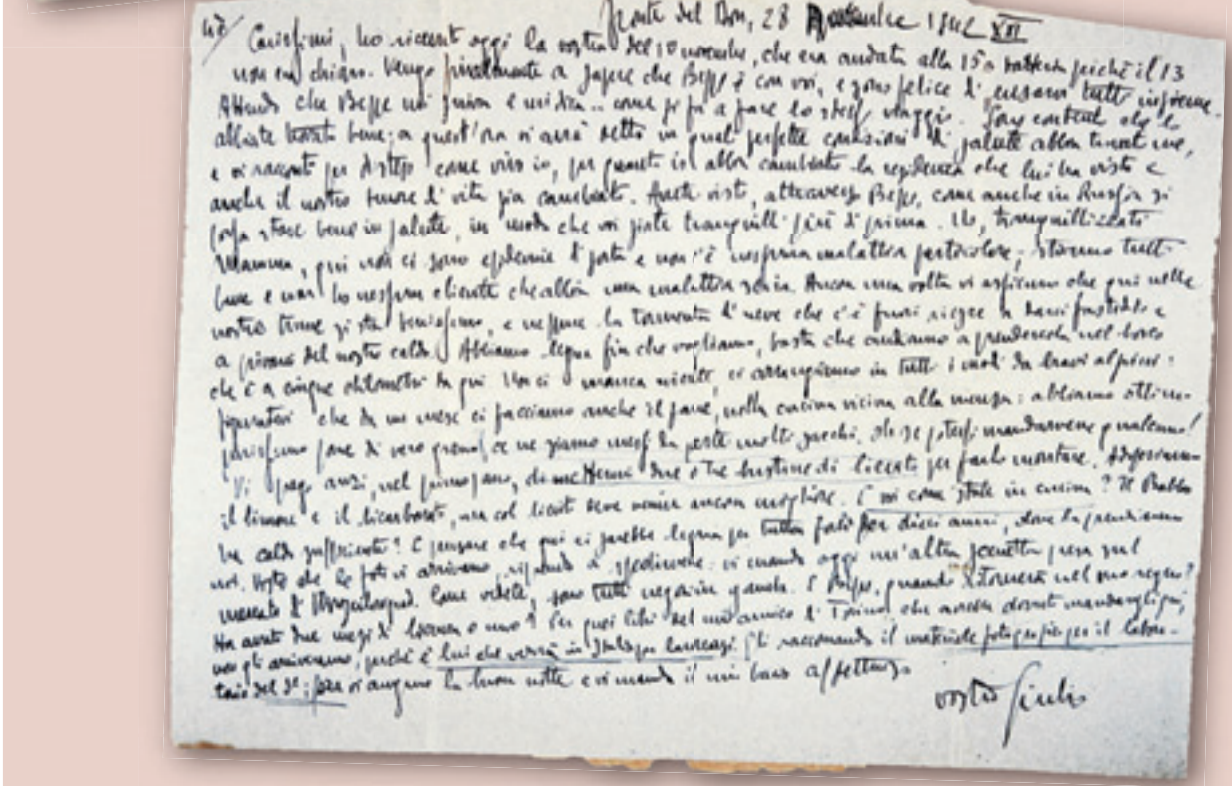 47/ Fronte del Don, 28 Novembre 1942 XXI
Carissimi, ho ricevuto oggi la vostra del 10 novembre, che era andata alla 15a batteria poichè il 13
non era chiaro. Vengo finalmente a sapere che Beppe è con voi, e sono felice di sapervi tutti insieme.
Attendo che Beppe mi scriva e mi dica .. come si fa a fare lo stesso viaggio. Sono contento che lo
abbiate trovato bene; a quest'ora vi avrà detto in quali perfette condizioni di salute abbia trovato me,
e vi racconti per disteso come vivo io, per quanto io abbia cambiato la residenza che lui ha visto e
anche il nostro tenore di vita sia cambiato. Avete visto, attraverso Beppe, come anche in Russia si
possa stare bene in salute, in modo che voi siate tranquilli più di prima. tranquillizzate
Mamma, qui non ci sono epidemie di sorta e non c'è nessuna malattia particolare; stanno tutti
bene e non ho nessun cliente che abbia una malattia seria. Ancora una volta vi assicuro che qui nelle
nostre tane si sta benissimo, e neppure la tormenta di neve che c'è fuori riesce a darci fastidio e
a privarci del nostro caldo. Abbiamo legna fin che vogliamo, basta che andiamo a prenderla nel bosco
che è a cinque chilometri da qui. Non ci manca niente, ci arrangiamo in tutti i modi da bravi alpini:
figuratevi che da un mese ci facciamo anche il pane, nella cucina vicina alla mensa: abbiamo ottimo
pane di vero grano, ce ne siamo messi da parte molti sacchi. Oh se potessi mandarvene qualcuno!
Vi prego anzi, nel primo pacco, di metterci due o tre bustine di lievito per farlo montare. Adoperiamo
il limone e il bicarbonato, ma col lievito deve venire ancora migliore. E voi come state in cucina? Il Babbo
ha caldo sufficiente? E pensare che qui ci sarebbe legna per dieci anni, dove la prendiamo
noi. Visto che le foto vi arrivano, riprendo a spedirvene: vi mando oggi un'altra scenetta presa sul
mercato di Come vedete, sono tutti E Beppe, quando ritornerà nel suo regno?
Ha avuto due mesi di licenza o uno? Per quei libri del mio amico di Torino che avrebbe dovuto mandargli qui,
non gli arrivano, perchè è lui che verrà in Italia per laurearsi. Gli raccomando il materiale fotografico per il labora-
torio del vi auguro la buona notte e vi mando il mio bacio affettuoso
vostro Giulio